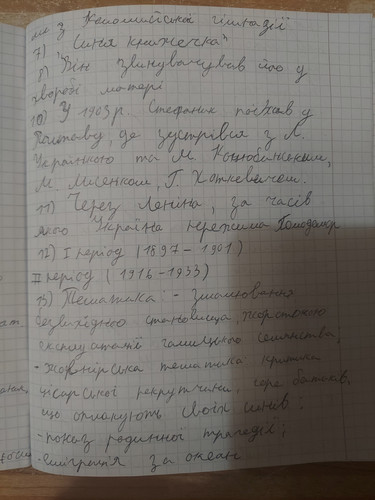 ме з Коломийської гімназії
7) "Синя книжечка"
8) Він звинувачував його у
хворобі матері
10) У 1903 р. Стефаник поїхав у
Полтаву, де зустрівся з Л.
Українкою та М. Коцюбинським,
М. Лисенком, Г. Хоткевичем.
11) Через Леніна, за часів
якого Україна пережила Голодомор
12) I період (1897 - 1901)
II період (1916 - 1933)
13) Тематика: - змалювання
безвихідного становища, жорстокою
експлуатації галицького селянства;
- жовнірська тематика критика
цісарської рекрутчини, горе батьків,
що оплакують своїх синів;
- показ родинної трагедії;
- еміграція за океан